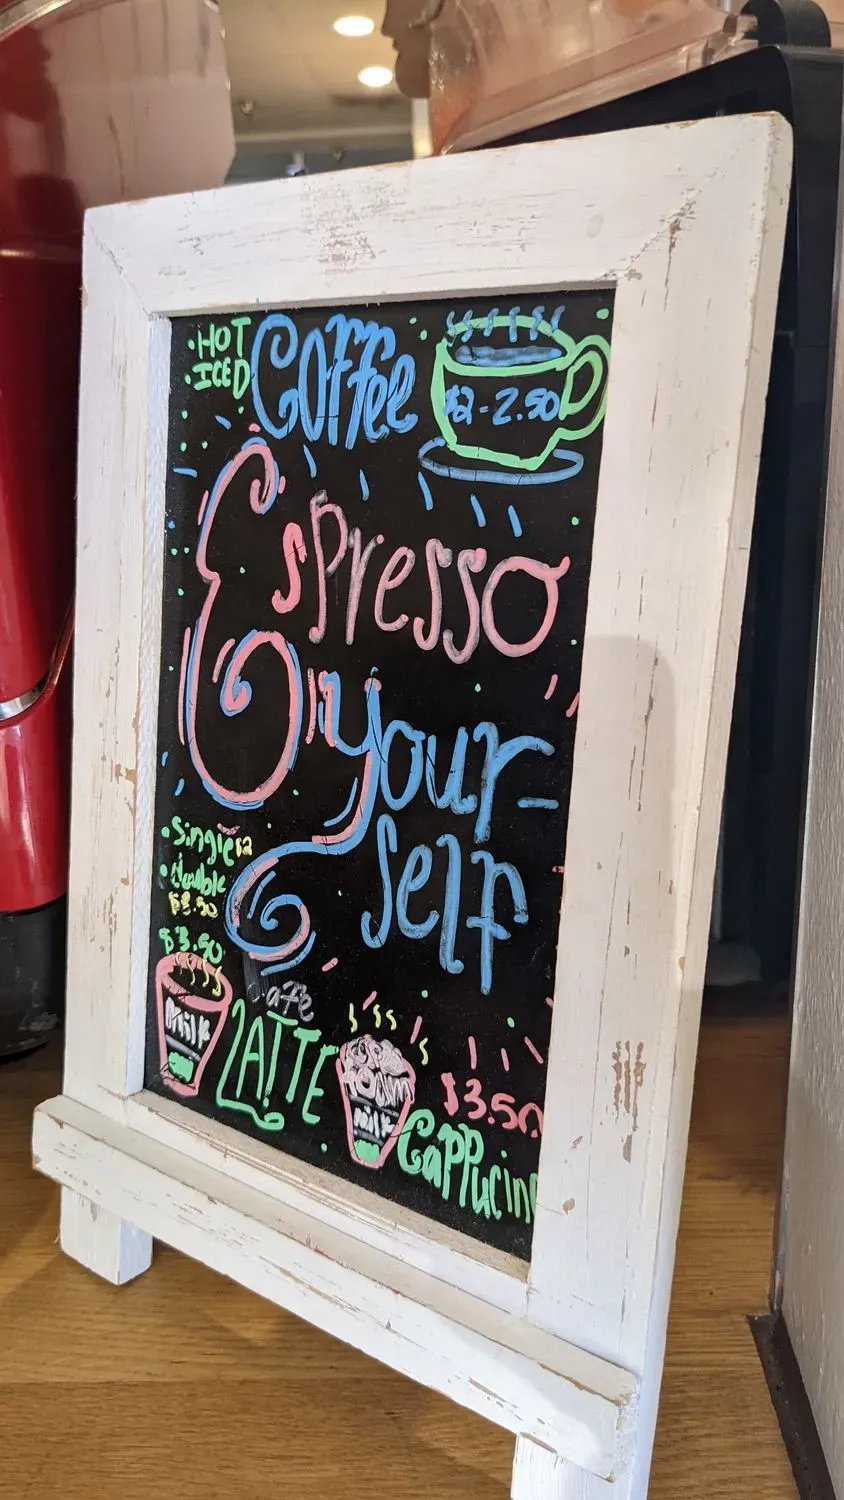 • HOT
• ICED
Coffee
$2-2.50
Espresso
your-
self
• Single $2
• double
$3.50
$3.50
Milk
Caffe
LATTE
Foam
Milk
$3.50
Cappucin